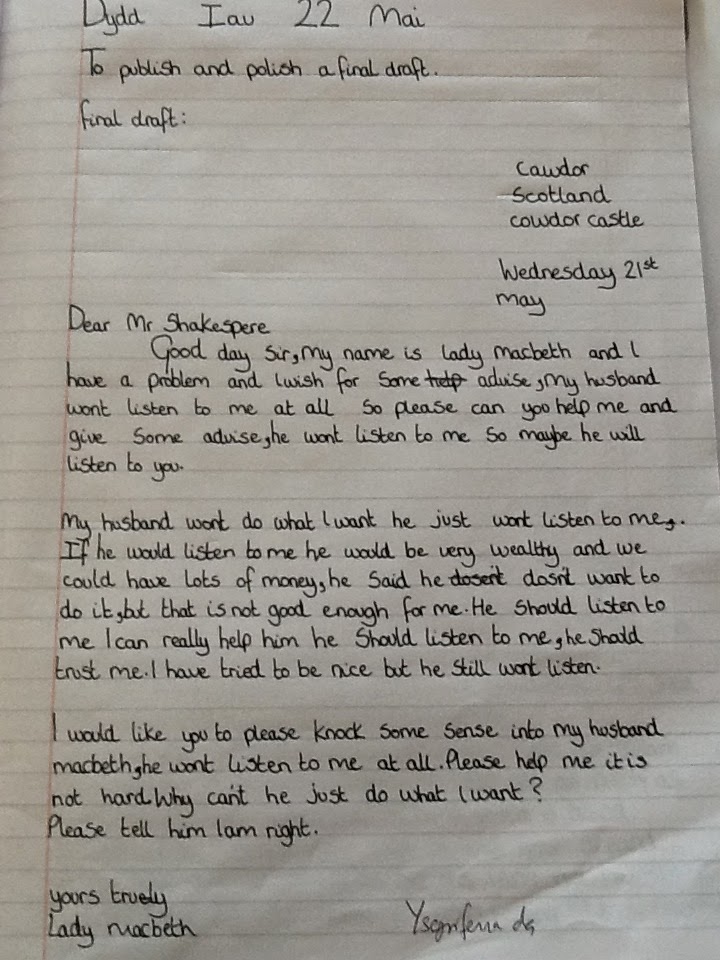 Dydd Iau 22 Mai
To publish and polish a final draft.
final draft:
Cawdor
Scotland
cowdor castle
Wednesday 21st
may
Dear Mr Shakespere
Good day sir, my name is lady macbeth and I
have a problem and I wish for some help advise, my husband
wont listen to me at all so please can yoo help me and
give some advise, he wont listen to me so maybe he will
listen to you.
My husband wont do what I want he just wont listen to me,.
If he would listen to me he would be very wealthy and we
could have lots of money, he said he dosen't dosn't want to
do it, but that is not good enough for me. He should listen to
me I can really help him he should listen to me, he should
trust me. I have tried to be nice but he still wont listen.
I would like you to please knock some sense into my husband
macbeth, he wont listen to me at all. Please help me it is
not hard. Why can't he just do what I want?
Please tell him I am right.
yours truely
Lady macbeth
Ysgrifenn da